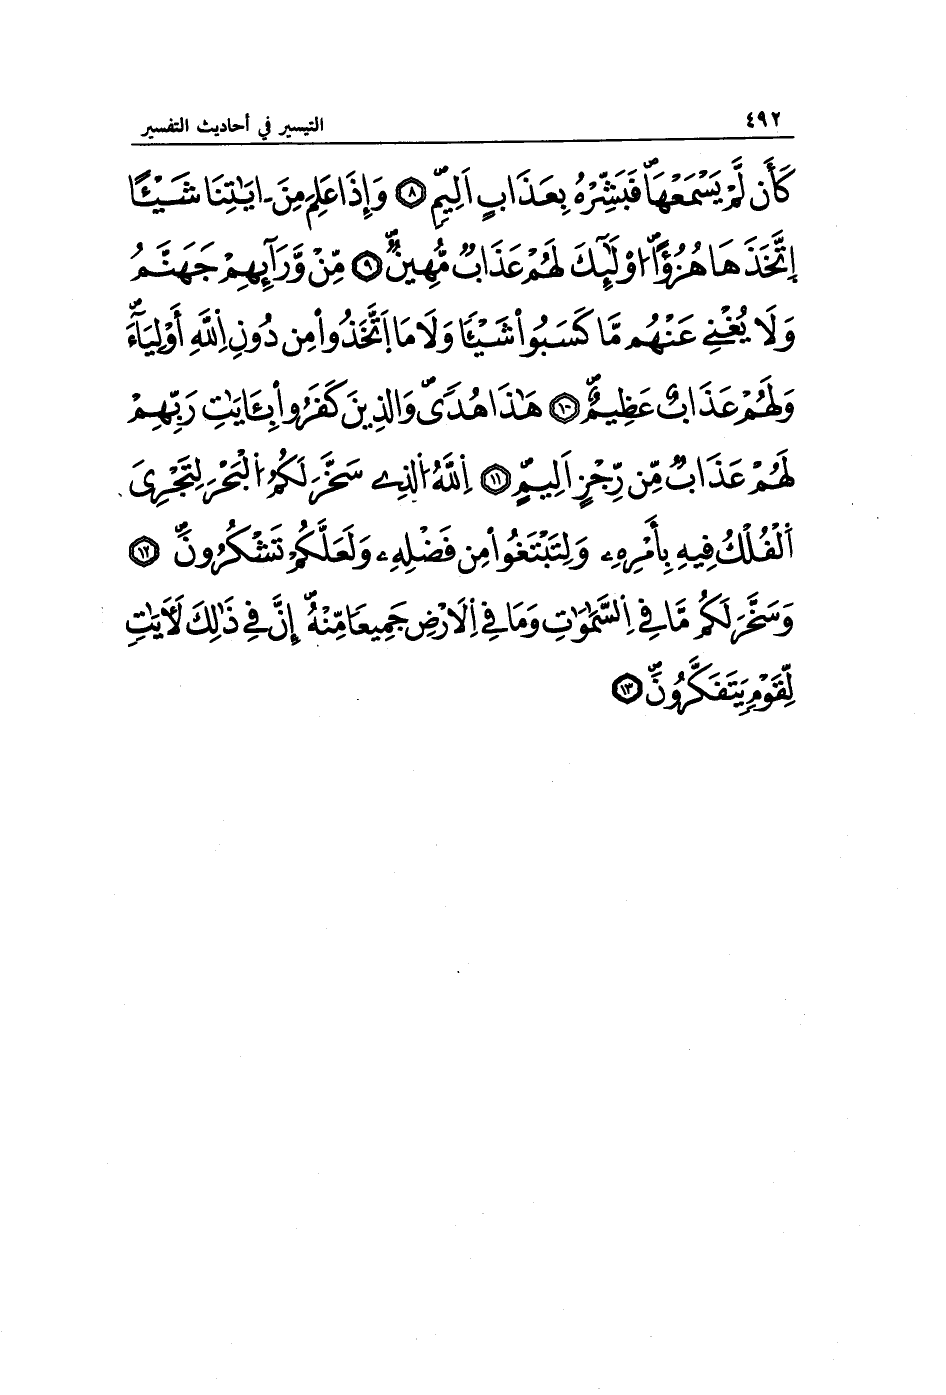 ٤٩٢
التيسير في أحاديث التفسير
كَأَن لَّمْ يَسْمَعْهَاۖ فَبَشِّرْهُ بِعَذَابٍ اَلِيمٖۖ ٨ وَإِذَا عَلِمَ مِنَ ـ ايَٰتِنَا شَيْـًٔا
اِتَّخَذَهَا هُزُؤًاۖ ا۟وْلَٰٓئِكَ لَهُمْ عَذَابٞ مُّهِينٞۖ ٩ مِّنْ وَّرَآئِهِمْ جَهَنَّمُ
وَلَا يُغْنِے عَنْهُم مَّا كَسَبُواْ شَيْـًٔا وَلَا مَا اَتَّخَذُواْ مِن دُونِ اِللَّهِ أَوْلِيَآءَۖ
وَلَهُمْ عَذَابٌ عَظِيمٌۖ ١٠ هَٰذَا هُدٗىۖ وَالذِينَ كَفَرُواْ بِـَٔايَٰتِ رَبِّهِمْ
لَهُمْ عَذَابٞ مِّن رِّجْزٍ اَلِيمٍۖ ١١ اِللَّهُ اُلذِے سَخَّرَ لَكُمُ اُلْبَحْرَ لِتَجْرِيَ
اَلْفُلْكُ فِيهِ بِأَمْرِهِۦ وَلِتَبْتَغُواْ مِن فَضْلِهِۦ وَلَعَلَّكُمْ تَشْكُرُونَۖ ١٢
وَسَخَّرَ لَكُم مَّا فِي اِلسَّمَٰوَٰتِ وَمَا فِي اِلَارْضِ جَمِيعًا مِّنْهُۖ إِنَّ فِي ذَٰلِكَ لَأٓيَٰتٖ
لِّقَوْمٖ يَتَفَكَّرُونَۖ ١٣